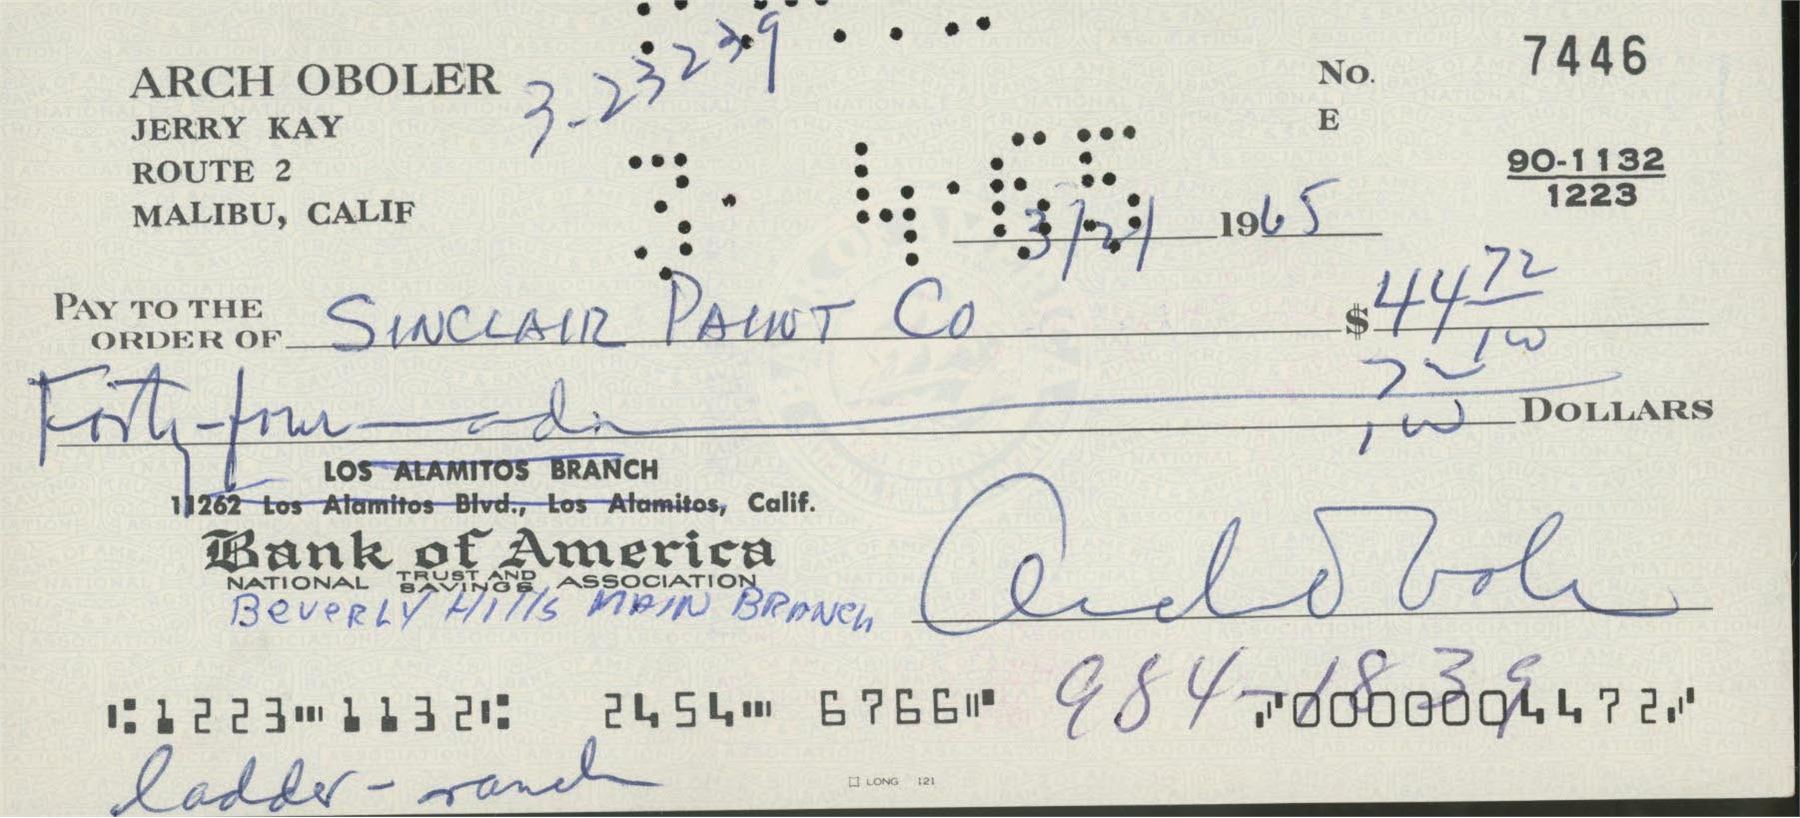 ARCH OBOLER
JERRY KAY
ROUTE 2
MALIBU, CALIF
3-23239
No. 7446
E
90-1132
1223
3/21 1965
PAY TO THE ORDER OF SINCLAIR PAINT CO $44 72
Forty-four and 72/100 DOLLARS
LOS ALAMITOS BRANCH
11262 Los Alamitos Blvd., Los Alamitos, Calif.
Bank of America
NATIONAL TRUST AND SAVINGS ASSOCIATION
Beverly Hills MAIN BRANCH
Arch Oboler
984-1839
⑆1223⑉1132⑆ 2454⑉ 6766⑈ ⑇0000004472⑇
ladder - ranch
LONG 121